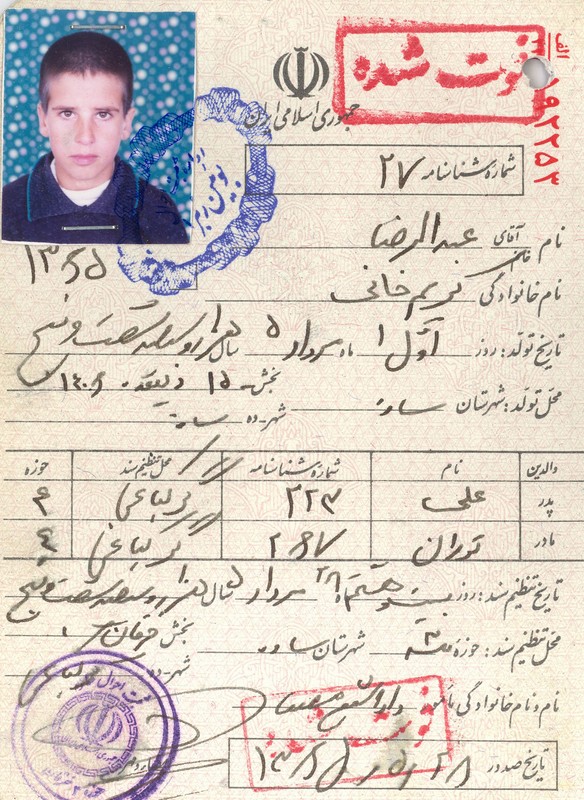 الف
۲۲
۱۹۲۲۵۳
فوت شده
جمهوری اسلامی ایران
شماره شناسنامه ۲۷
نام آقای خانم عبدالرضا
۱۳۶۵
نام خانوادگی کریم خانی
تاریخ تولد: روز اول ۱ ماه مرداد ۵ سال هزار و سیصد و شصت و پنج
۱۵ ذیقعده ۱۴۰۶
محل تولد: شهرستان ساوه بخش شهر-ده ساوه
والدین نام شماره شناسنامه محل تنظیم سند حوزه
پدر علی ۲۲۳ ۴
مادر توران ۲۶۷ ۴
تاریخ تنظیم سند: روز بیست و هشتم ماه مرداد سال هزار و سیصد و شصت و پنج
محل تنظیم سند: حوزه ۳ شهرستان ساوه بخش خرقان
شهر-ده
نام و نام خانوادگی مأمور
فوت شده
تاریخ صدور ۱۳۶۵/۵/۲۸